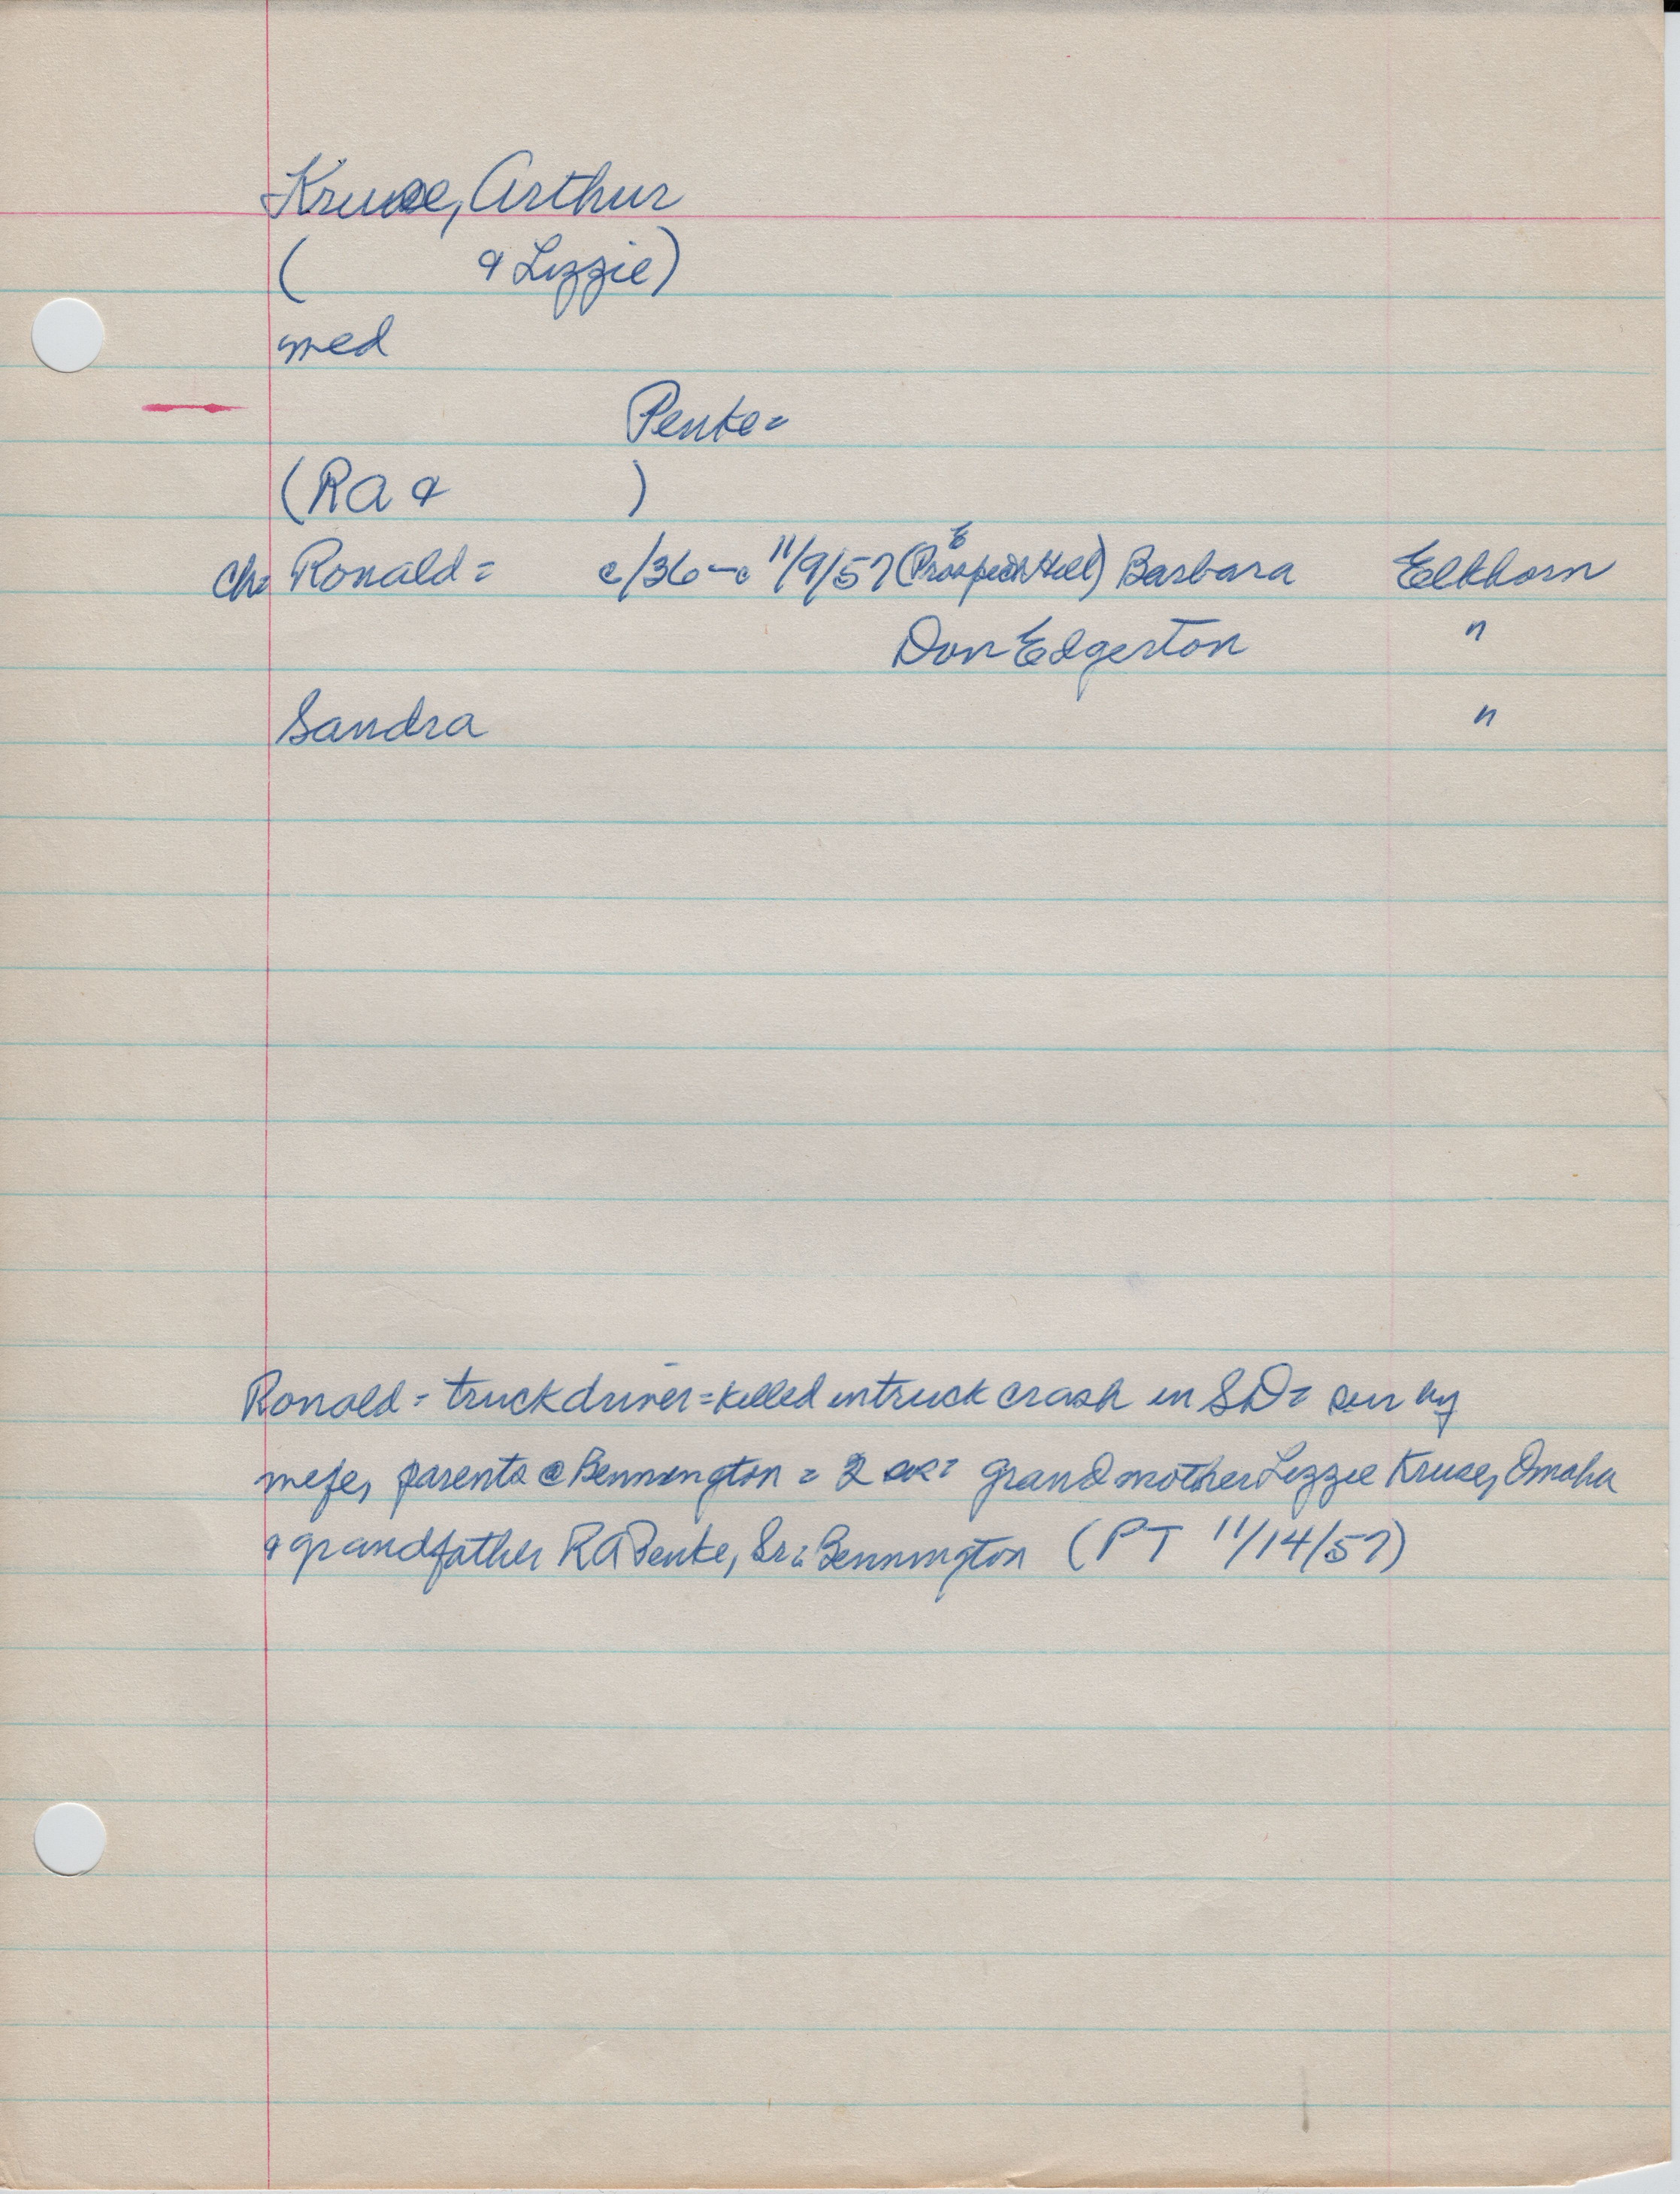 Kruse, Arthur
( & Lizzie)
med
Penke =
(RA & )
ch: Ronald = c/36 - c 11/9/57 (Prospect Hill) E Barbara Elkhorn
Don Edgerton "
Sandra "
Ronald = truck driver = killed in truck crash in SD = sur by
wife, parents @ Bennington = 2 sis = grandmother Lizzie Kruse, Omaha
& grandfather RA Penke, Sr: Bennington (PT 11/14/57)